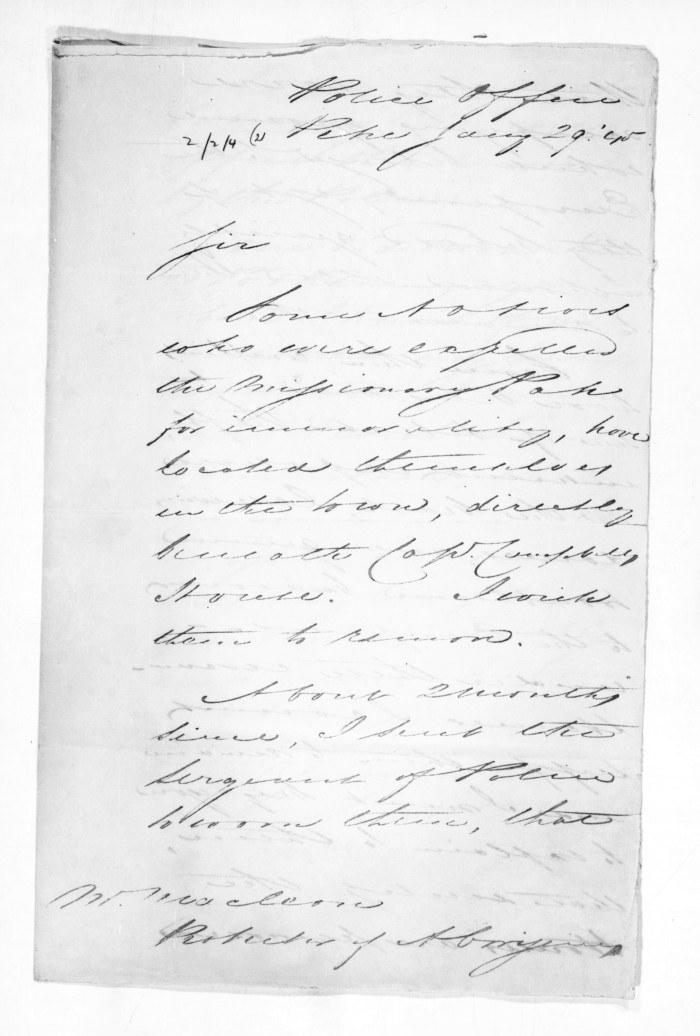 Police Office
2/2/4 (2) Petre Jany 29. '45
Sir
Some Natives
who were expelled
the Missionary Pah
for immorality, have
located themselves
in the town, directly
beneath Capt. Campbells
House. I wish
them to remove.
About 2 months
since, I sent the
Sergeant of Police
to warn them, that
Protector of Aborigines